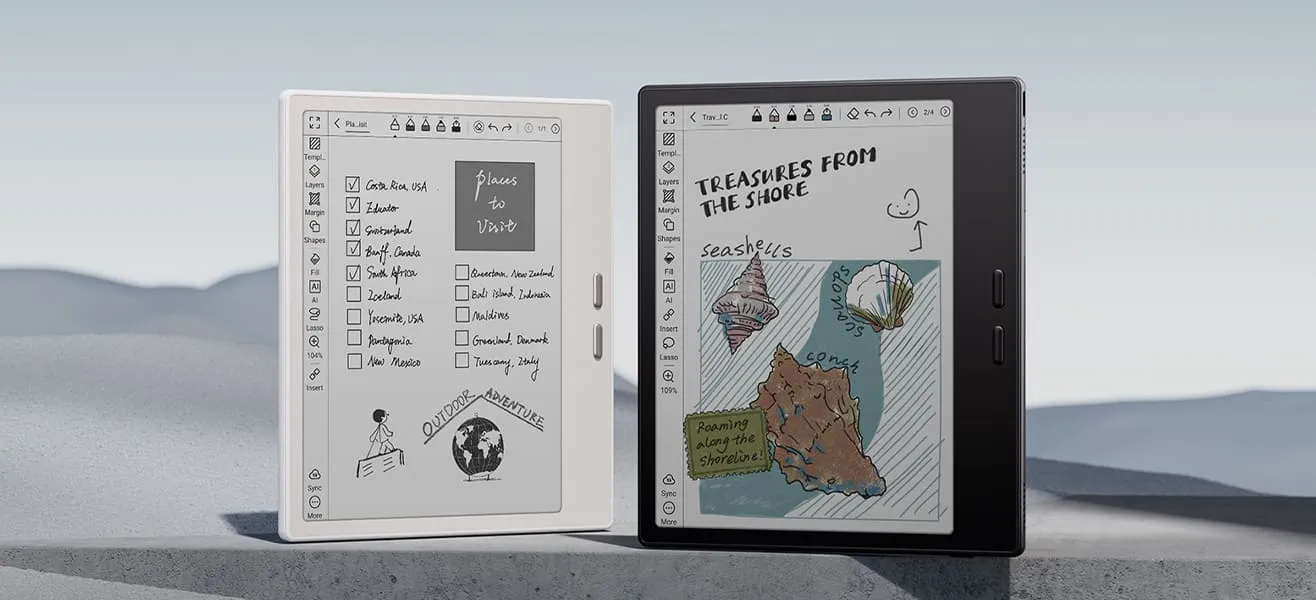 Pla...isit
1/1
Templ...
Layers
Margin
Shapes
Fill
AI
AI
Lasso
104%
Insert
Sync
More
Places
to
Visit
Costa Rica, USA
Switzerland
Banff, Canada
South Africa
Iceland
Yosemite, USA
Pantagonia
New Mexico
New Zealand
Bali island, Indonesia
Maldives
Greenland, Denmark
Tuescany, Italy
OUTDOOR ADVENTURE
Trav...l C
2/4
Templ...
Layers
Margin
Shapes
Fill
AI
AI
Insert
Lasso
109%
Sync
More
TREASURES FROM
THE SHORE
seashells
scallops
conch
Roaming
along the
Shoreline!